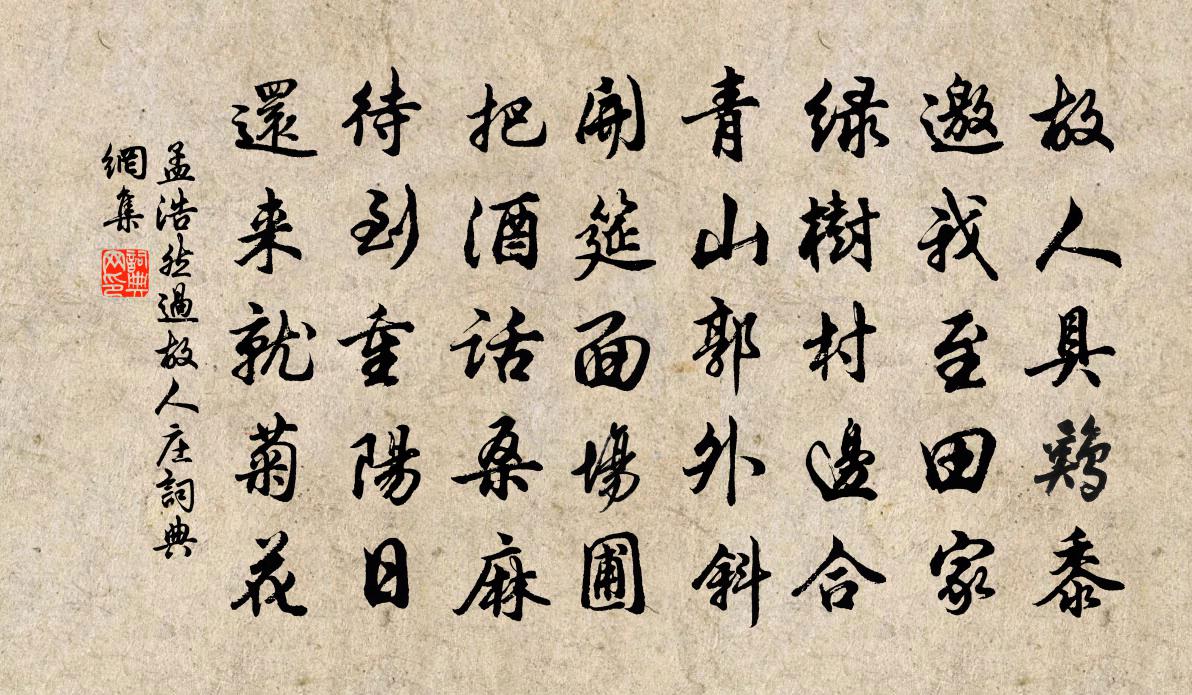 故人具鷄黍
邀我至田家
緑樹村邊合
青山郭外斜
開筵面場圃
把酒話桑麻
待到重陽日
還来就菊花
孟浩然過故人庄詞典
網集
詞典
网印